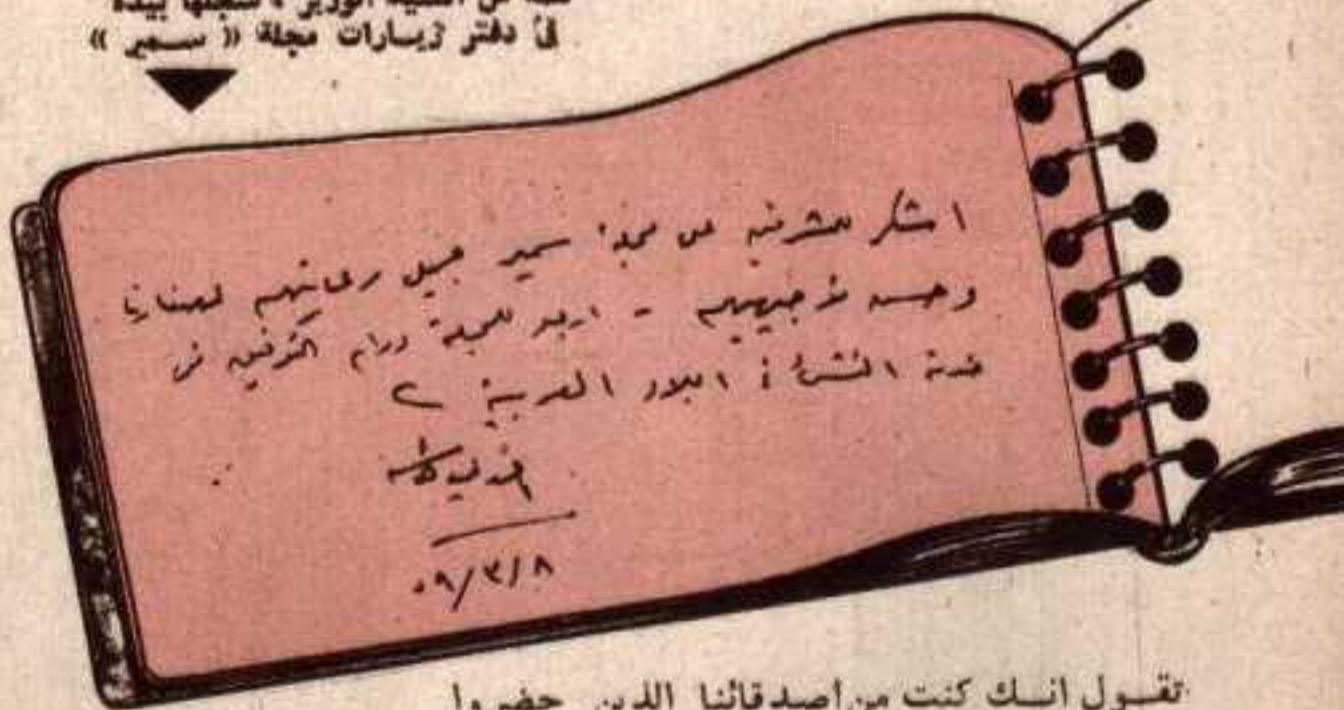 كلمة من السيد الوزير ، سجلها بيده
فى دفتر زيارات مجلة (( سـمير ))
اشكر المشرفين على مجلة سمير جميل رعايتهم لصغارنا
وحسن توجيههم - ارجو للمجلة دوام التوفيق فى
خدمة النشئ فى البلاد العربية
٥٩/٣/٨
تقـول انـك كنت من أصدقائنا الذين حضروا